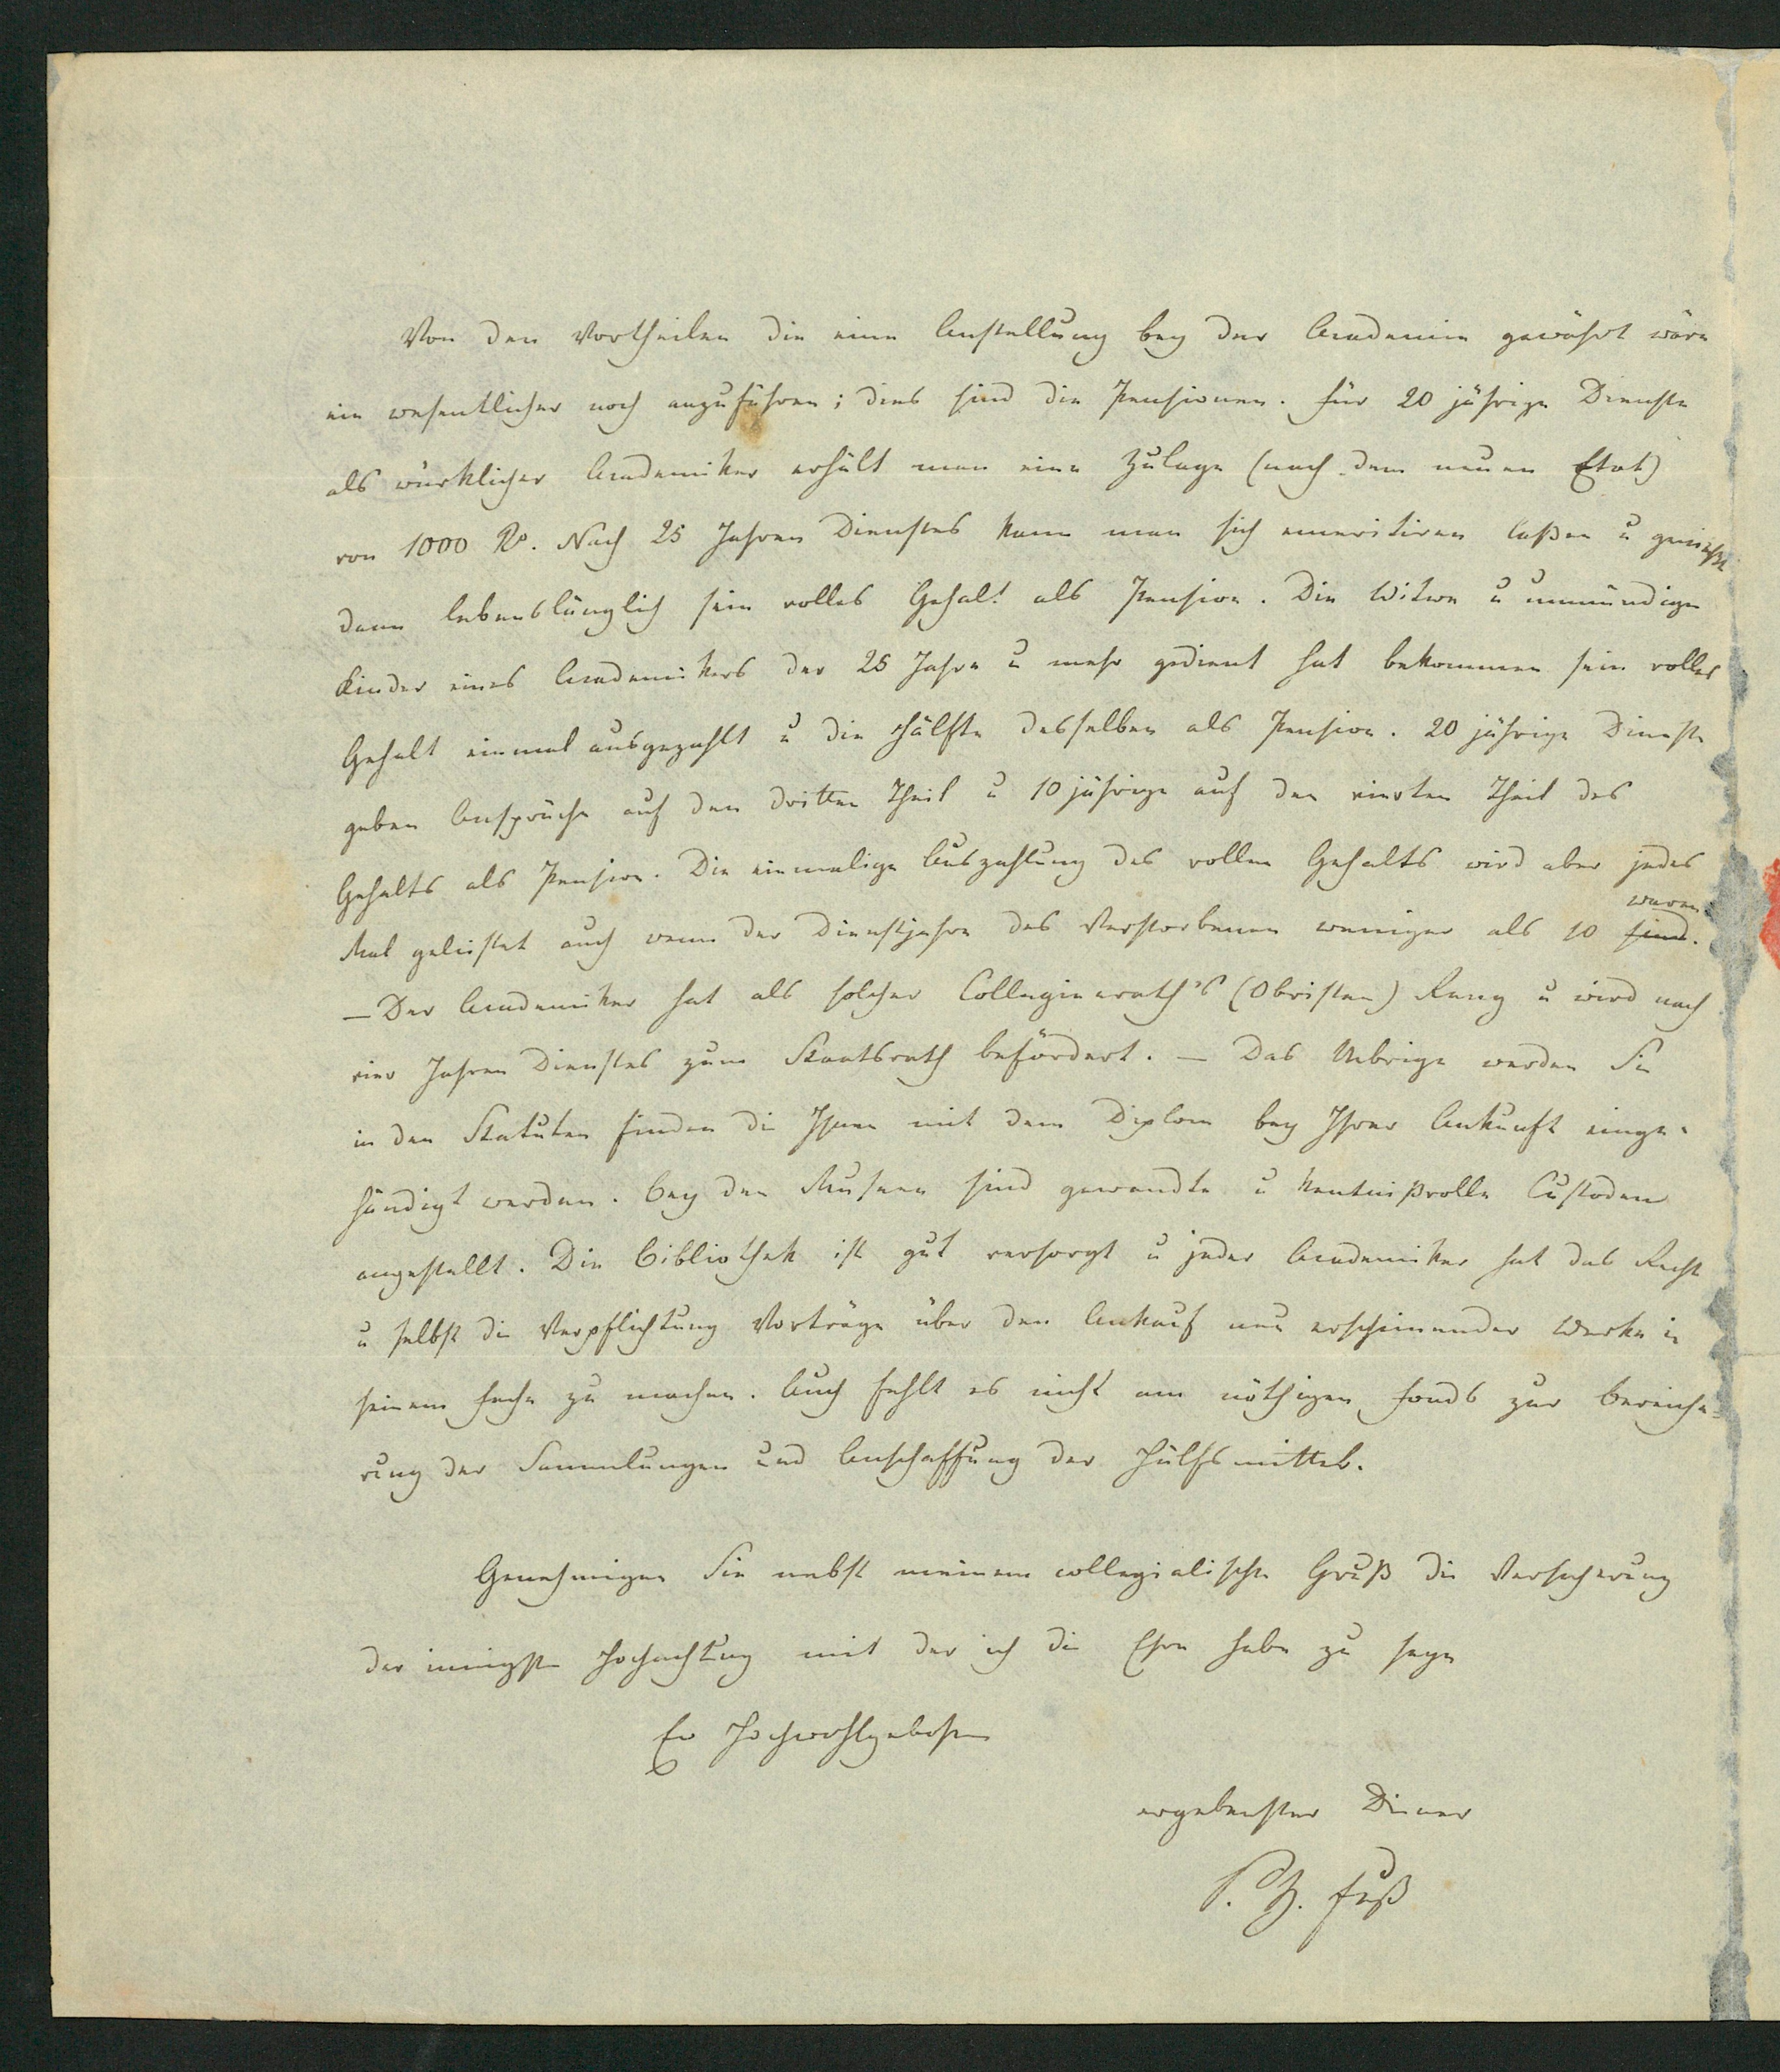 Von den Vortheilen die eine Anstellung bey der Academie gewährt wäre
ein wesentlicher noch anzuführen; dies sind die Pensionen. Für 20 jährige Dienste
als würklicher Academiker erhält man eine Zulage (nach dem neuen Etat)
von 1000 R. Nach 25 Jahren Dienstes kann man sich emeritiren laßen u genießt
dann lebenslänglich sein volles Gehalt als Pension. Die Witwe u unmündige
Kinder eines Academikers der 25 Jahre u mehr gedient hat bekommen sein volles
Gehalt einmal ausgezahlt u die Hälfte desselben als Pension. 20 jährige Dienste
geben Ansprüche auf den dritten Theil u 10 jährige auf den vierten Theil des
Gehalts als Pension. Die einmalige Auszahlung des vollen Gehalts wird aber jedes
Mal geleistet auch wenn der Dienstjahre des Verstorbenen weniger als 10 sind waren.
— Der Academiker hat als solcher Collegienrath's (Obristen) Rang u wird nach
vier Jahren Dienstes zum Staatsrath befördert. — Das Uebrige werden Sie
in den Statuten finden die Ihnen mit dem Diplom bey Ihrer Ankunft einge-
händigt werden. Bey den Museen sind gewandte u kentnißvolle Custoden
angestellt. Die Bibliothek ist gut versorgt u jeder Academiker hat das Recht
u selbst die Verpflichtung Vorträge über den Ankauf neu erscheinender Werke in
seinem Fache zu machen. Auch fehlt es nicht am nöthigen Fonds zur Bereiche-
rung der Sammlungen und Anschaffung der Hülfsmittel.
Genehmigen Sie nebst meinem collegialischen Gruß die Versicherung
der innigsten Hochachtung mit der ich die Ehre habe zu seyn
Ew Hochwohlgeboren
ergebenster Diener
P. H. Fuß